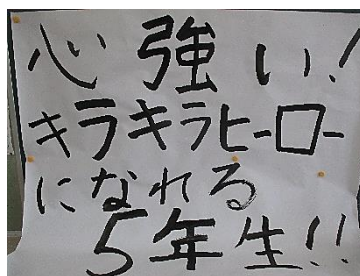 心強い!
キラキラヒーロー
になれる
5年生!!